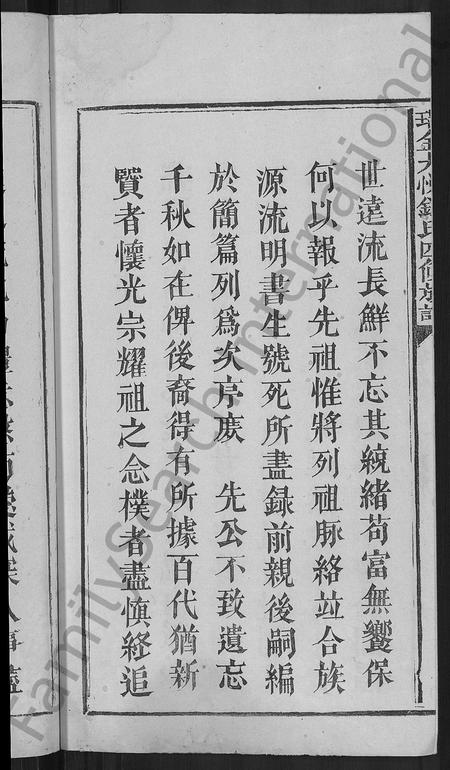 世遠流長鮮不忘其統緒苟富無饗保
何以報乎先祖惟將列祖脉絡竝合族
源流明書生號死所盡錄前親後嗣編
於簡篇列為次序庶 先公不致遺忘
千秋如在俾後裔得有所據百代猶新
賢者懷光宗耀祖之念樸者盡慎終追
FamilySearch International